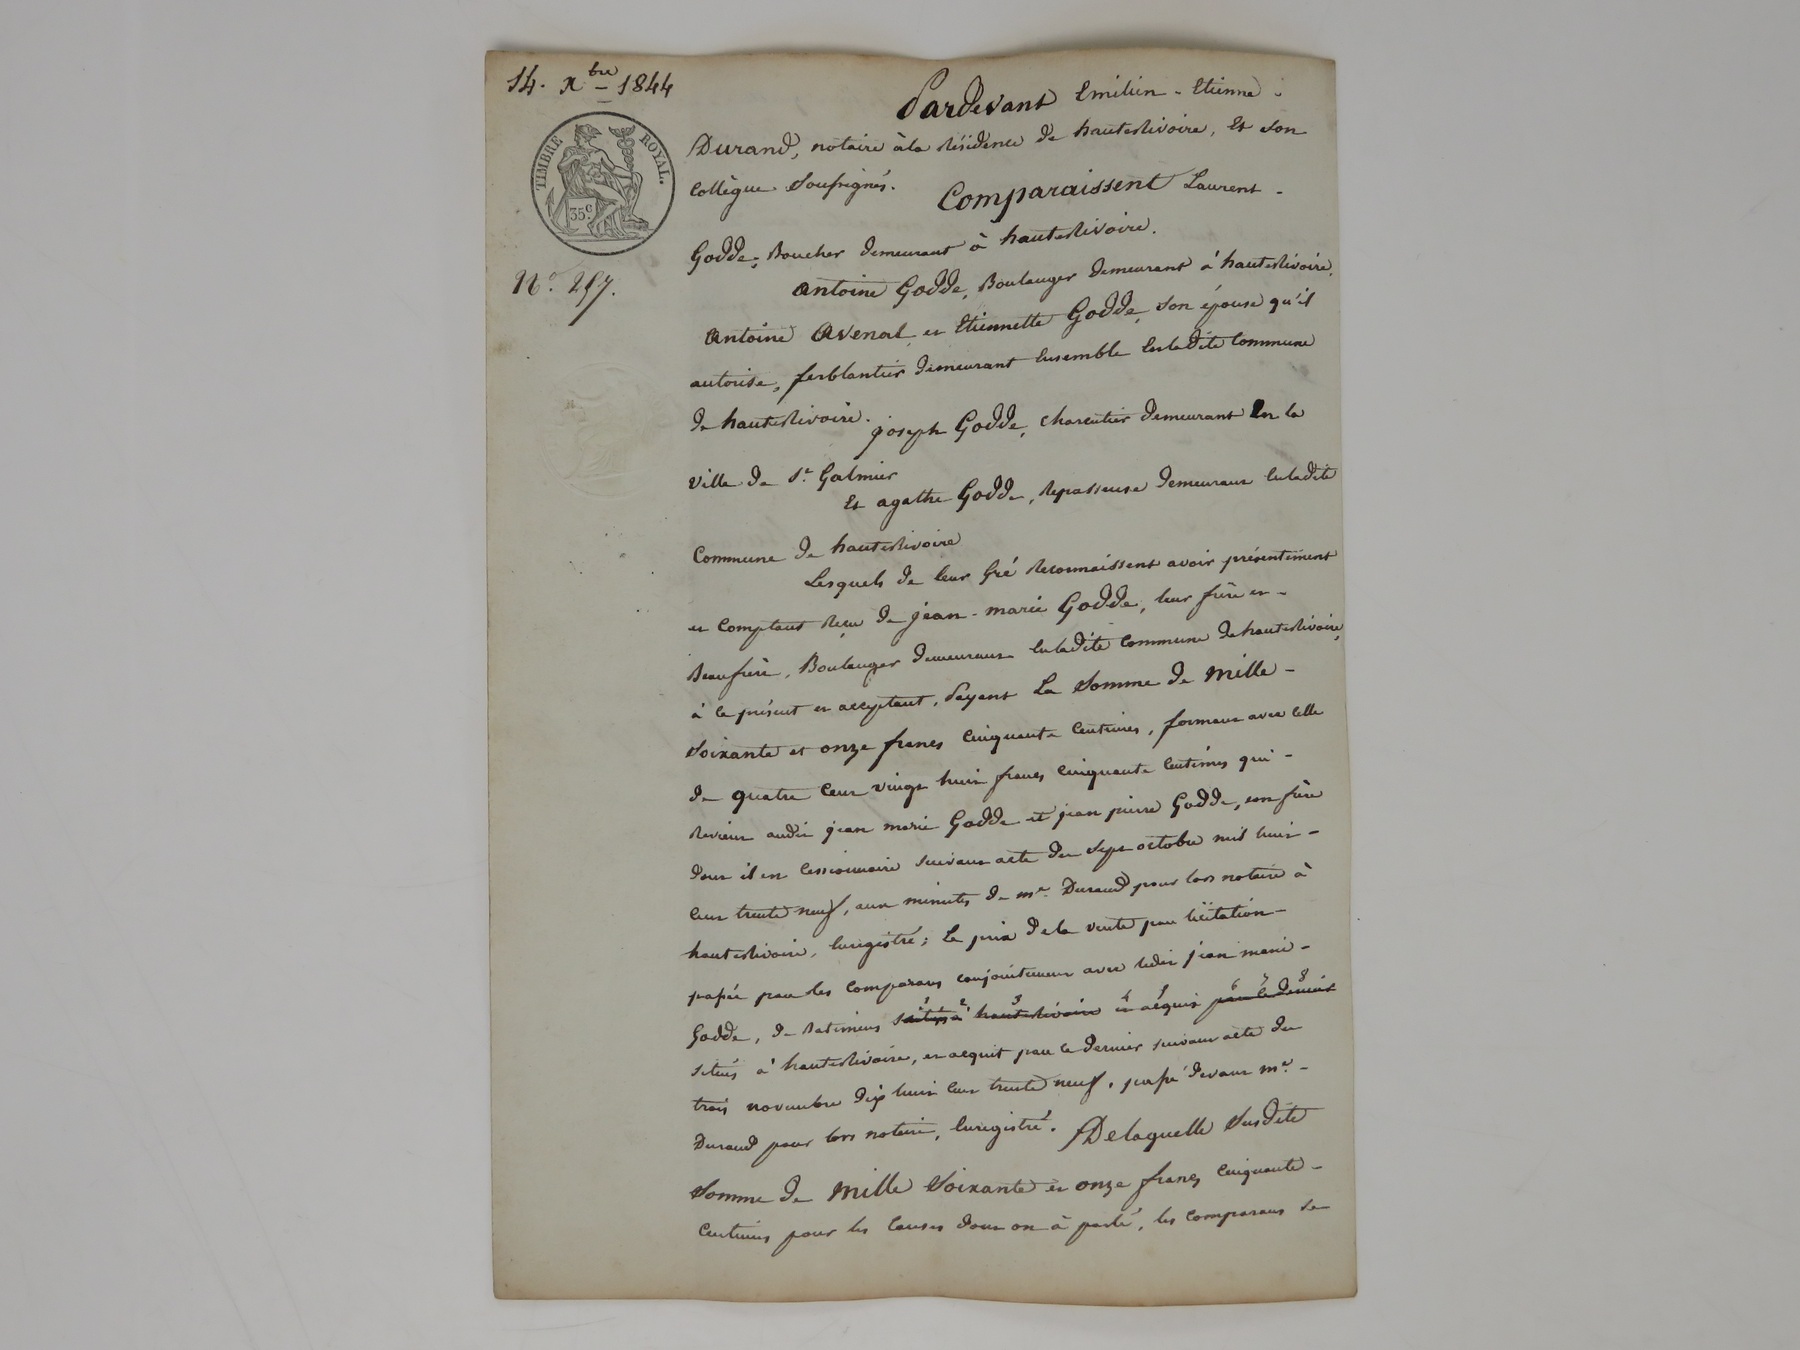 14. Xbre 1844
TIMBRE ROYAL.
35c
No. 257.
Pardevant Emilien - Etienne -
Durand, notaire à la résidence de hauterivoire, Et son
Collègue soussignés.
Comparaissent Laurent -
Godde, Boucher demeurant à hauterivoire.
Antoine Godde, Boulanger demeurant à hauterivoire,
Antoine Avenal et Etiennette Godde, son épouse qu'il
autorise, ferblantier demeurant Ensemble En ladite Commune
de hauterivoire.
joseph Godde, charcutier demeurant En la
ville de St. Galmier
Et agathe Godde, Repasseuse demeurant En ladite
Commune de hauterivoire
Lesquels de leur Gré Reconnaissent avoir présentement
et Comptant Reçu de jean-marie Godde, leur frère et -
Beaufrère, Boulanger demeurant En ladite Commune de hauterivoire,
à ce présent et acceptant, Payant La Somme de Mille -
Soixante et onze francs Cinquante Centimes, formant avec Celle
de quatre Cent vingt huit francs Cinquante Centimes qui -
Revient audit jean marie Godde et jean pierre Godde, son frère
dont il est Cessionnaire suivant acte du Sept octobre mil huit -
Cent trente neuf, aux minutes de me. Durand pour lors notaire à
hauterivoire, Enregistré; Le prix de la vente par licitation -
passée par les Comparans conjointement avec ledit jean marie -
Godde, de Batimens situés à hauterivoire et acquis par ce dernier
1 2 3 4 5 6 7 8
situés à hauterivoire, et acquit par ce dernier suivant acte du
trois novembre dix huit Cent trente neuf, passé devant me. -
Durand pour lors notaire, Enregistré. De laquelle Susdite
Somme de Mille Soixante et onze francs Cinquante -
Centimes pour les Causes dont on à parlé, les Comparans se